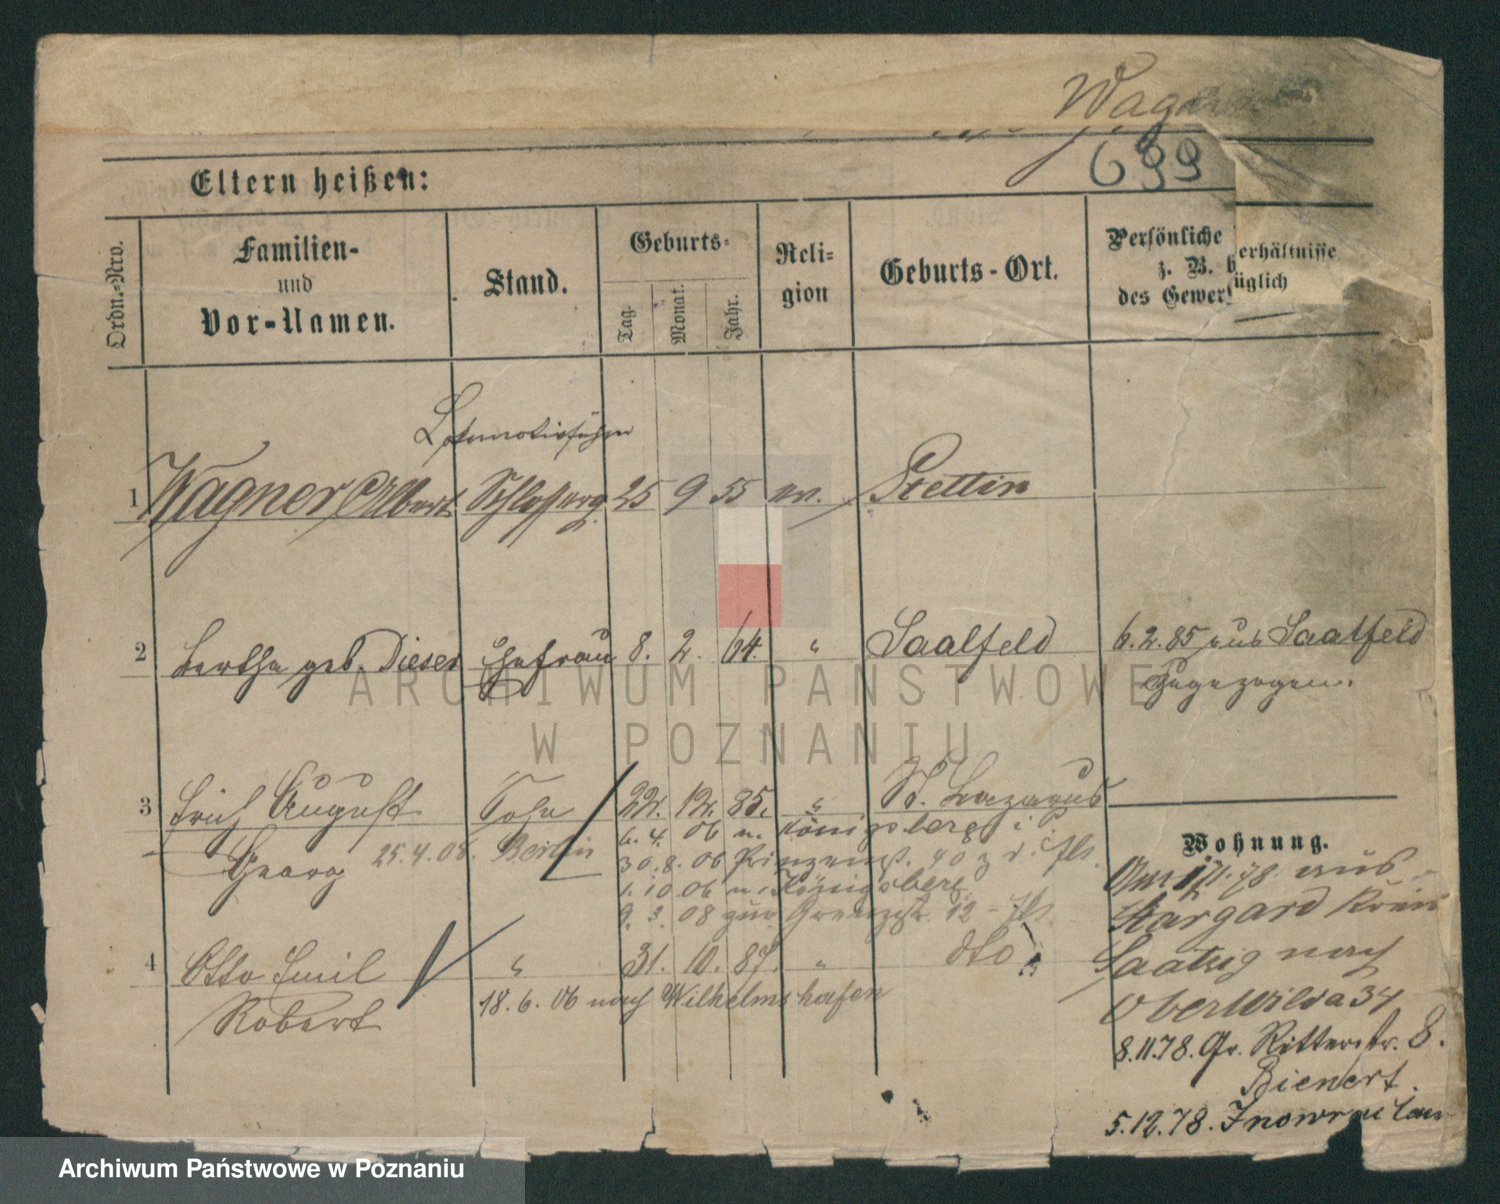 Wagner
699
Eltern heißen:
Ordn.-Nro.
Familien-
und
Vor-Namen.
Stand.
Geburts-
Tag.
Monat.
Jahr.
Reli-
gion
Geburts-Ort.
Persönliche Verhältnisse
z. B.
üglich
des Gewer
Lokomotivführer
1 Wagner Albert Schlosserg. 25 9 55 ev. Stettin
2 Bertha geb. Dieser Ehefrau 8. 2. 64. " Saalfeld 6.2.85 aus Saalfeld
zugezogen.
3 Erich August Sohn 22. 12. 85. " St. Lazarus
Georg 25.4.08. Berlin
6. 4. 06 n. Königsberg i/
30. 8. 06 Prinzenstr. 40 z
1. 10 06 n. Königsberg
9. 3. 08 zur Grenzstr. 12
4 Otto Emil " 31. 10. 87. " dto
Robert
18. 6. 06 nach Wilhelmshafen
Wohnung.
78 aus
Stargard Kreis
Saatzig nach
Oberwilda 34
8.11.78. Gr. Ritterstr. 8.
Bienert.
5.12.78. Inowrazlaw
ARCHIWUM PAŃSTWOWE
W POZNANIU
Archiwum Państwowe w Poznaniu